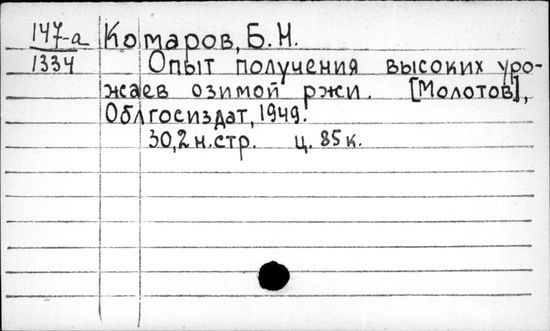 147-а Комаров, Б.Н.
1334 Опыт получения высоких уро-
жаев озимой ржи. [Молотов],
Облгосиздат, 1949.
30,2 н.стр. ц. 85 к.